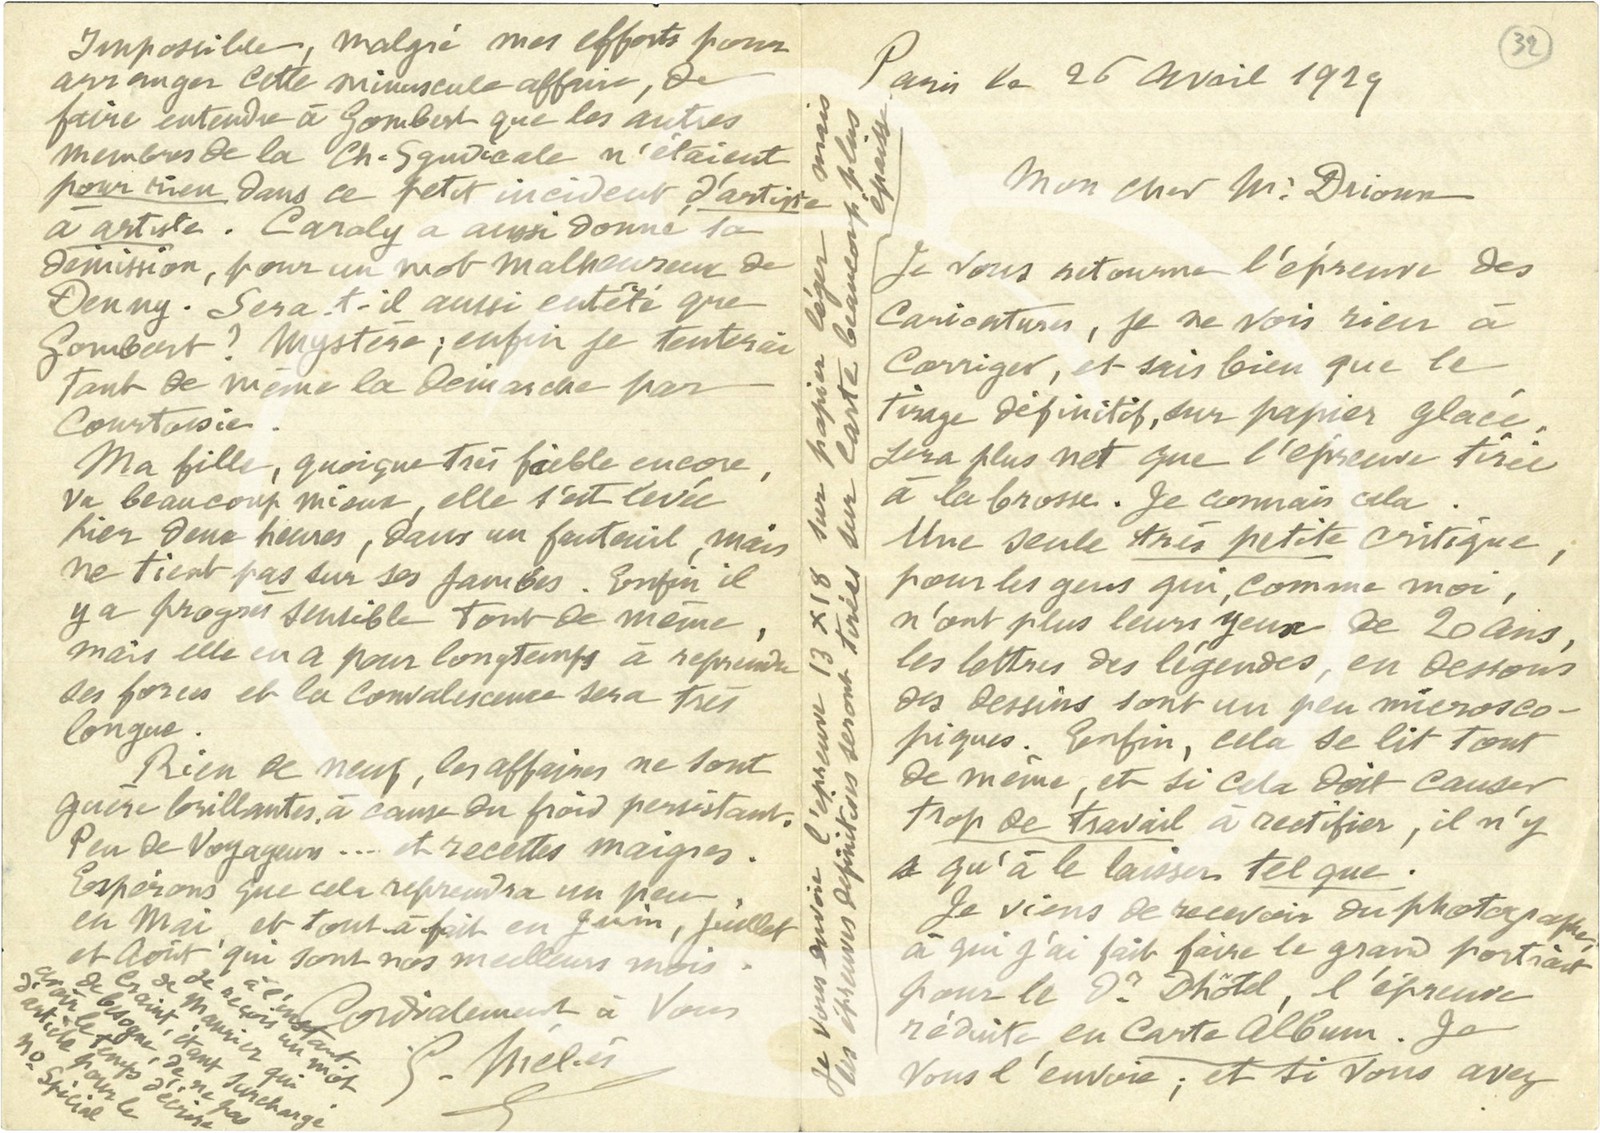 32
Paris le 26 Avril 1929
Mon cher Mr. Drioux
Je vous retourne l'épreuve des
Caricatures, je ne vois rien à
Corriger, et sais bien que le
tirage définitif, sur papier glacé,
sera plus net que l'épreuve tirée
à la brosse. Je connais cela.
Une seule très petite critique,
pour les gens qui, comme moi,
n'ont plus leurs yeux de 20 ans,
les lettres des légendes, en dessous
des dessins sont un peu microsco-
piques. Enfin, cela se lit tout
de même, et si cela doit causer
trop de travail à rectifier, il n'y
a qu'à le laisser tel que.
Je viens de recevoir du photographe,
à qui j'ai fait faire le grand portrait
pour le Dr Dhôtel, l'épreuve
réduite en Carte Album. Je
vous l'envoie; et si vous avez
Impossible, malgré mes efforts pour
arranger cette minuscule affaire, de
faire entendre à Gombert que les autres
membres de la Ch. Syndicale n'étaient
pour rien dans ce petit incident d'artiste
à artiste. Caroly a aussi donné sa
démission, pour un mot malheureux de
Denny. Sera-t-il aussi entêté que
Gombert? Mystère; enfin je tenterai
tant de même la démarche par
Courtoisie.
Ma fille, quoique très faible encore,
va beaucoup mieux, elle s'est levée
hier deux heures, dans un fauteuil, mais
ne tient pas sur ses jambes. Enfin il
y a progrès sensible tout de même,
mais elle en a pour longtemps à reprendre
ses forces et la convalescence sera très
longue.
Rien de neuf, les affaires ne sont
guère brillantes, à cause du froid persistant.
Peu de Voyageurs ... et recettes maigres.
Espérons que cela reprendra un peu
en Mai, et tout-à-fait en Juin, Juillet
et Août, qui sont nos meilleurs mois.
Cordialement à Vous
G. Méliès
à l'instant
je reçois un mot
de Maurier qui
craint, étant surchargé
de besogne, de ne pas
avoir le temps d'écrire
d'article pour le
No Spécial
Je vous envoie l'épreuve 13 x 18 sur papier léger mais
les épreuves définitives seront tirées sur carte beaucoup plus
épaisse